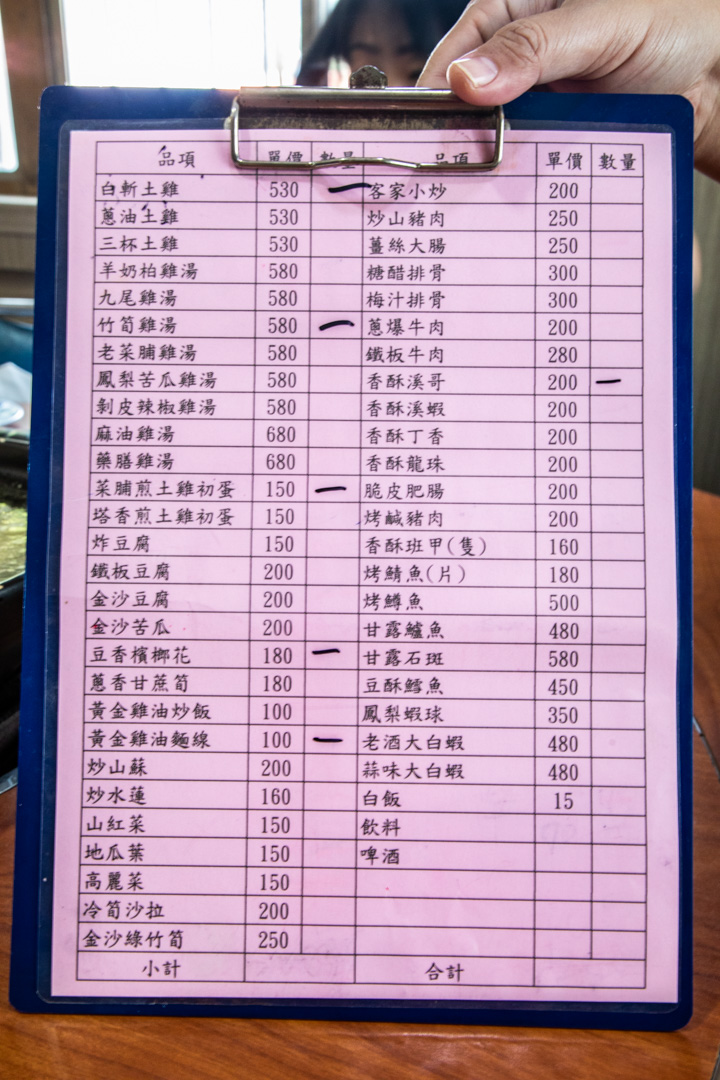 品項 單價 數量 品項 單價 數量
白斬土雞 530 一 客家小炒 200
蔥油土雞 530 炒山豬肉 250
三杯土雞 530 薑絲大腸 250
羊奶柏雞湯 580 糖醋排骨 300
九尾雞湯 580 梅汁排骨 300
竹筍雞湯 580 一 蔥爆牛肉 200
老菜脯雞湯 580 鐵板牛肉 280
鳳梨苦瓜雞湯 580 香酥溪哥 200 一
剝皮辣椒雞湯 580 香酥溪蝦 200
麻油雞湯 680 香酥丁香 200
藥膳雞湯 680 香酥龍珠 200
菜脯煎土雞初蛋 150 一 脆皮肥腸 200
塔香煎土雞初蛋 150 烤鹹豬肉 200
炸豆腐 150 香酥班甲(隻) 160
鐵板豆腐 200 烤鯖魚(片) 180
金沙豆腐 200 烤鱒魚 500
金沙苦瓜 200 甘露鱸魚 480
豆香檳榔花 180 一 甘露石斑 580
蔥香甘蔗筍 180 豆酥鱈魚 450
黃金雞油炒飯 100 鳳梨蝦球 350
黃金雞油麵線 100 一 老酒大白蝦 480
炒山蘇 200 蒜味大白蝦 480
炒水蓮 160 白飯 15
山紅菜 150 飲料
地瓜葉 150 啤酒
高麗菜 150
冷筍沙拉 200
金沙綠竹筍 250
小計 合計